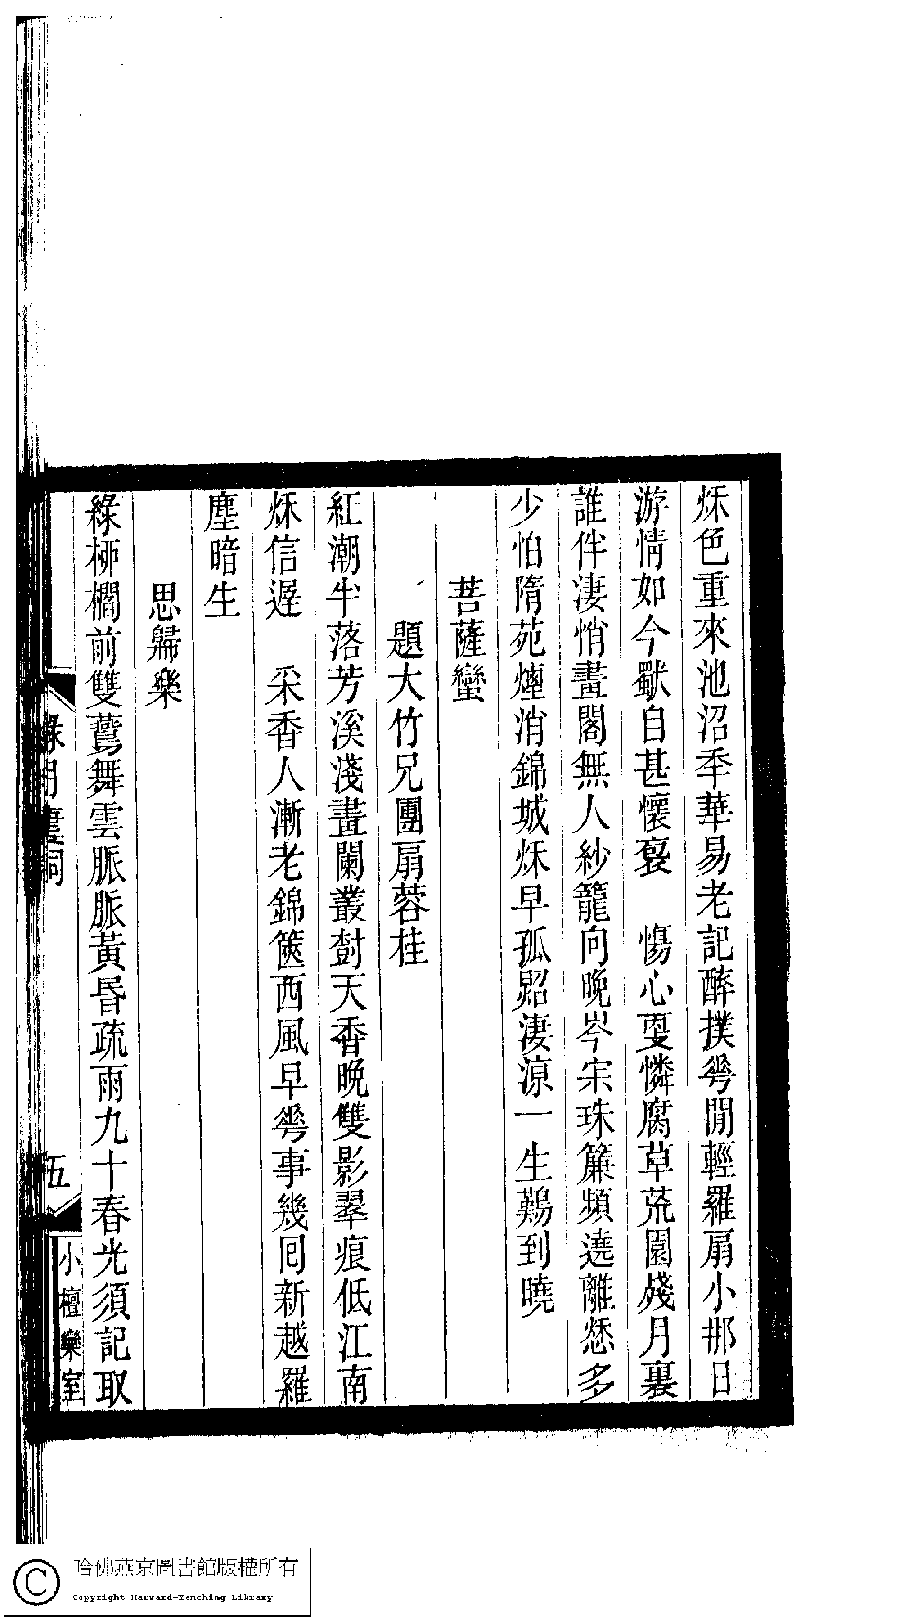 秌色重來池沼季華易老記醉撲蕚閒輕羅扇小那日
游情如今猒自甚懷裛　慯心耎憐腐草荒園殘月裏
誰伴淒悄畫閣無人紗籠向晚岑宗珠簾頻遶離愁多
少怕隋苑煙消錦城秌早孤照淒涼一生鷄到曉
菩薩蠻
題大竹兄團扇蓉桂
紅潮半落芳溪淺畫闌叢尌天香晚雙影翠痕低江南
秌信遲　采香人漸老錦篋西風早蕚事幾囘新越羅
塵暗生
思歸樂
綠桺櫩前雙鷰舞雲脈脈黃昬疏雨九十春光須記取
綠月廔詞
五
小檀欒室
哈佛燕京圖書館版權所有
Copyright Harvard-Yenching Library